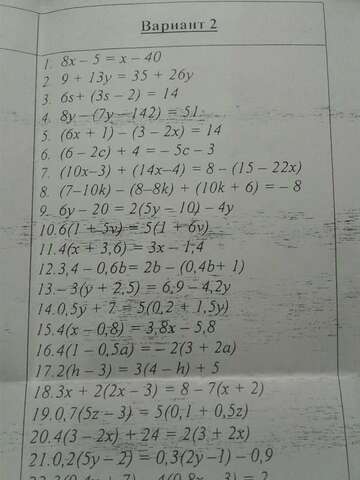 Вариант 2
1. 8x – 5 = x – 40
2. 9 + 13y = 35 + 26y
3. 6s + (3s – 2) = 14
4. 8y – (7y – 142) = 51
5. (6x + 1) – (3 – 2x) = 14
6. (6 – 2c) + 4 = – 5c – 3
7. (10x–3) + (14x–4) = 8 – (15 – 22x)
8. (7–10k) – (8–8k) + (10k + 6) = – 8
9. 6y – 20 = 2(5y – 10) – 4y
10. 6(1 + 5v) = 5(1 + 6v)
11. 4(x + 3,6) = 3x – 1,4
12. 3,4 – 0,6b = 2b – (0,4b + 1)
13. –3(y + 2,5) = 6,9 – 4,2y
14. 0,5y + 7 = 5(0,2 + 1,5y)
15. 4(x – 0,8) = 3,8x – 5,8
16. 4(1 – 0,5a) = – 2(3 + 2a)
17. 2(h – 3) = 3(4 – h) + 5
18. 3x + 2(2x – 3) = 8 – 7(x + 2)
19. 0,7(5z – 3) = 5(0,1 + 0,5z)
20. 4(3 – 2x) + 24 = 2(3 + 2x)
21. 0,2(5y – 2) = 0,3(2y –1) – 0,9